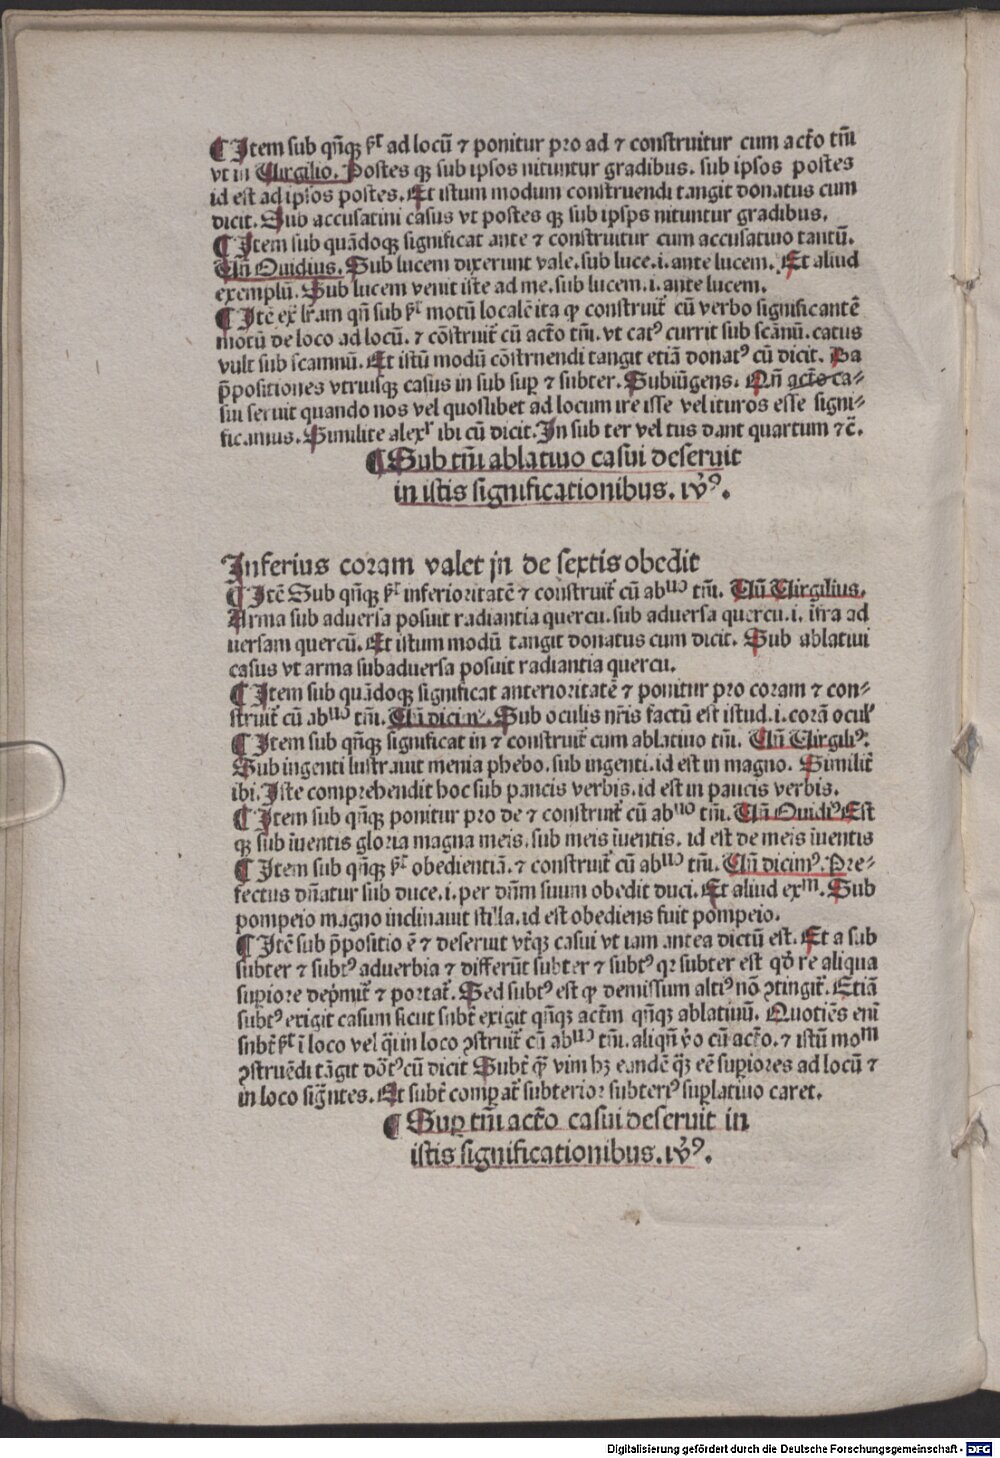 ¶ Item sub qn̄qꝫ ẜꝉ ad locū ⁊ ponitur pro ad ⁊ construitur cum actō tm̄
vt in Virgilio. Postes qꝫ sub ipsos nituntur gradibus. sub ipsos postes
id est ad ipsos postes. Et istum modum construendi tangit donatus cum
dicit. Sub accusatiui casus vt postes qꝫ sub ipsps nituntur gradibus.
¶ Item sub quādoqꝫ significat ante ⁊ construitur cum accusatiuo tantū.
Vn̄ Ouidius. Sub lucem dixerunt vale. sub luce. i. ante lucem. Et aliud
exemplū. Sub lucem venit iste ad me. sub lucem. i. ante lucem.
¶ Itē ex lr̄am qn̄ sub ẜꝉ motū localē ita ꝙ construit̄ cū verbo significantē
motū de loco ad locū. ⁊ cōstruit̄ cū actō tm̄. vt catꝰ currit sub scānū. catus
vult sub scamnū. Et istū modū cōstrnendi tangit etiā donatꝰ cū dicit. Da
p̄positiones vtriusqꝫ casus in sub suꝑ ⁊ subter. Subiūgens. Qn̄ actō ca⸗
sui seruit quando nos vel quoslibet ad locum ire isse vel ituros esse signi⸗
ficamus. Similite alexʳ ibi cū dicit. In sub ter vel tus dant quartum ⁊c̄.
¶ Sub tm̄ ablatiuo casui deseruit
in istis significationibus. ꝟꝰ.
Inferius coram valet in de sextis obedit
¶ Itē Sub qn̄qꝫ ẜꝉ inferioritatē ⁊ construit̄ cū abᵘᵒ tm̄. Vn̄ Virgilius.
Arma sub aduersa posuit radiantia quercu. sub aduersa quercu. i. īfra ad
uersam quercū. Et istum modū tangit donatus cum dicit. Sub ablatiui
casus vt arma subaduersa posuit radiantia quercu.
¶ Item sub quādoqꝫ significat anterioritatē ⁊ ponitur pro coram ⁊ con⸗
struit̄ cū abᵘᵒ tm̄. Vn̄ dicimꝰ. Sub oculis nr̄is factū est istud. i. corā oculꝭ
¶ Item sub qn̄qꝫ significat in ⁊ construit̄ cum ablatiuo tm̄. Vn̄ Virgiliꝰ.
Sub ingenti lustrauit menia phebo. sub ingenti. id est in magno. Similit̄
ibi. Iste comprehendit hoc sub paucis verbis. id est in paucis verbis.
¶ Item sub qn̄qꝫ ponitur pro de ⁊ construit̄ cū abᵘᵒ tm̄. Vn̄ Ouidiꝰ Est
qꝫ sub īuentis gloria magna meis. sub meis īuentis. id est de meis īuentis
¶ Item sub qn̄qꝫ ẜꝉ obedientiā. ⁊ construit̄ cū abᵘᵒ tm̄. Vn̄ dicimꝰ. Pre⸗
fectus dn̄atur sub duce. i. per dn̄m suum obedit duci. Et aliud exᵐ. Sub
pompeio magno inclinauit silla. id est obediens fuit pompeio.
¶ Itē sub p̄positio ē ⁊ deseruit vtrīqꝫ casui vt iam antea dictū est. Et a sub
subter ⁊ subtꝰ aduerbia ⁊ differūt subter ⁊ subtꝰ qꝛ subter est qd̄ re aliqua
suꝑiore dep̄mit̄ ⁊ portat̄. Sed subtꝰ est ꝙ demissum altiꝰ nō ꝯtingit̄. Etiā
subtꝰ exigit casum sicut subt̄ exigit qn̄qꝫ actm̄ qn̄qꝫ ablatiuū. Quotiēs eni
subt̄ ẜꝉ ī loco vel q̄i in loco ꝯstruit̄ cū abᵘᵒ tm̄. aliqn̄ v̄o cū actō. ⁊ istū moᵐ
ꝯstruēdi tāgit dōtꝰ cū dicit Subt̄ q̄ vim hꝫ eandē qꝫ eē suꝑiores ad locū ⁊
in loco sig̅ntes. Et subt̄ comꝑat̄ subterior subterrꝰ suꝑlatiuo caret.
¶ Suꝑ tm̄ actō casui deseruit in
istis significationibus. ꝟꝰ.
Digitalisierung gefördert durch die Deutsche Forschungsgemeinschaft - DFG